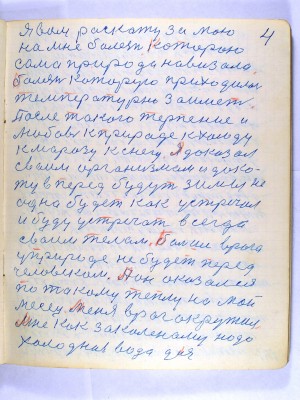 4
Я Вам раскажу за мою
на мне болезн которою
сама природа навизала.
Болезн которую приходилось
температурно
После такого терпение и
любови к природе к холоду
к марозу к снегу. Я доказал
своим организмам и дока-
жу в перед будут зимы не
одно будет как устречал
и буду устречать всегда
своим телам. Болши врага
у природе не будет перед
человеком. А он оказался
по такому телу на мой
месец меня враг окружил
Мне как закаленому надо
холодная вода для